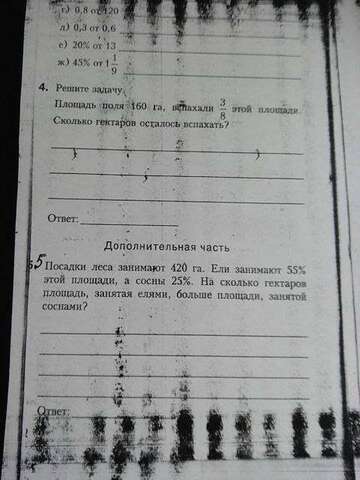 г) 0,8 от 120
д) 0,3 от 0,6
е) 20% от 13
ж) 45% от 1 1/9
4. Решите задачу.
Площадь поля 160 га, вспахали 3/8 этой площади.
Сколько гектаров осталось вспахать?
Ответ:
Дополнительная часть
5 Посадки леса занимают 420 га. Ели занимают 55%
этой площади, а сосны 25%. На сколько гектаров
площадь, занятая елями, больше площади, занятой
соснами?
Ответ: